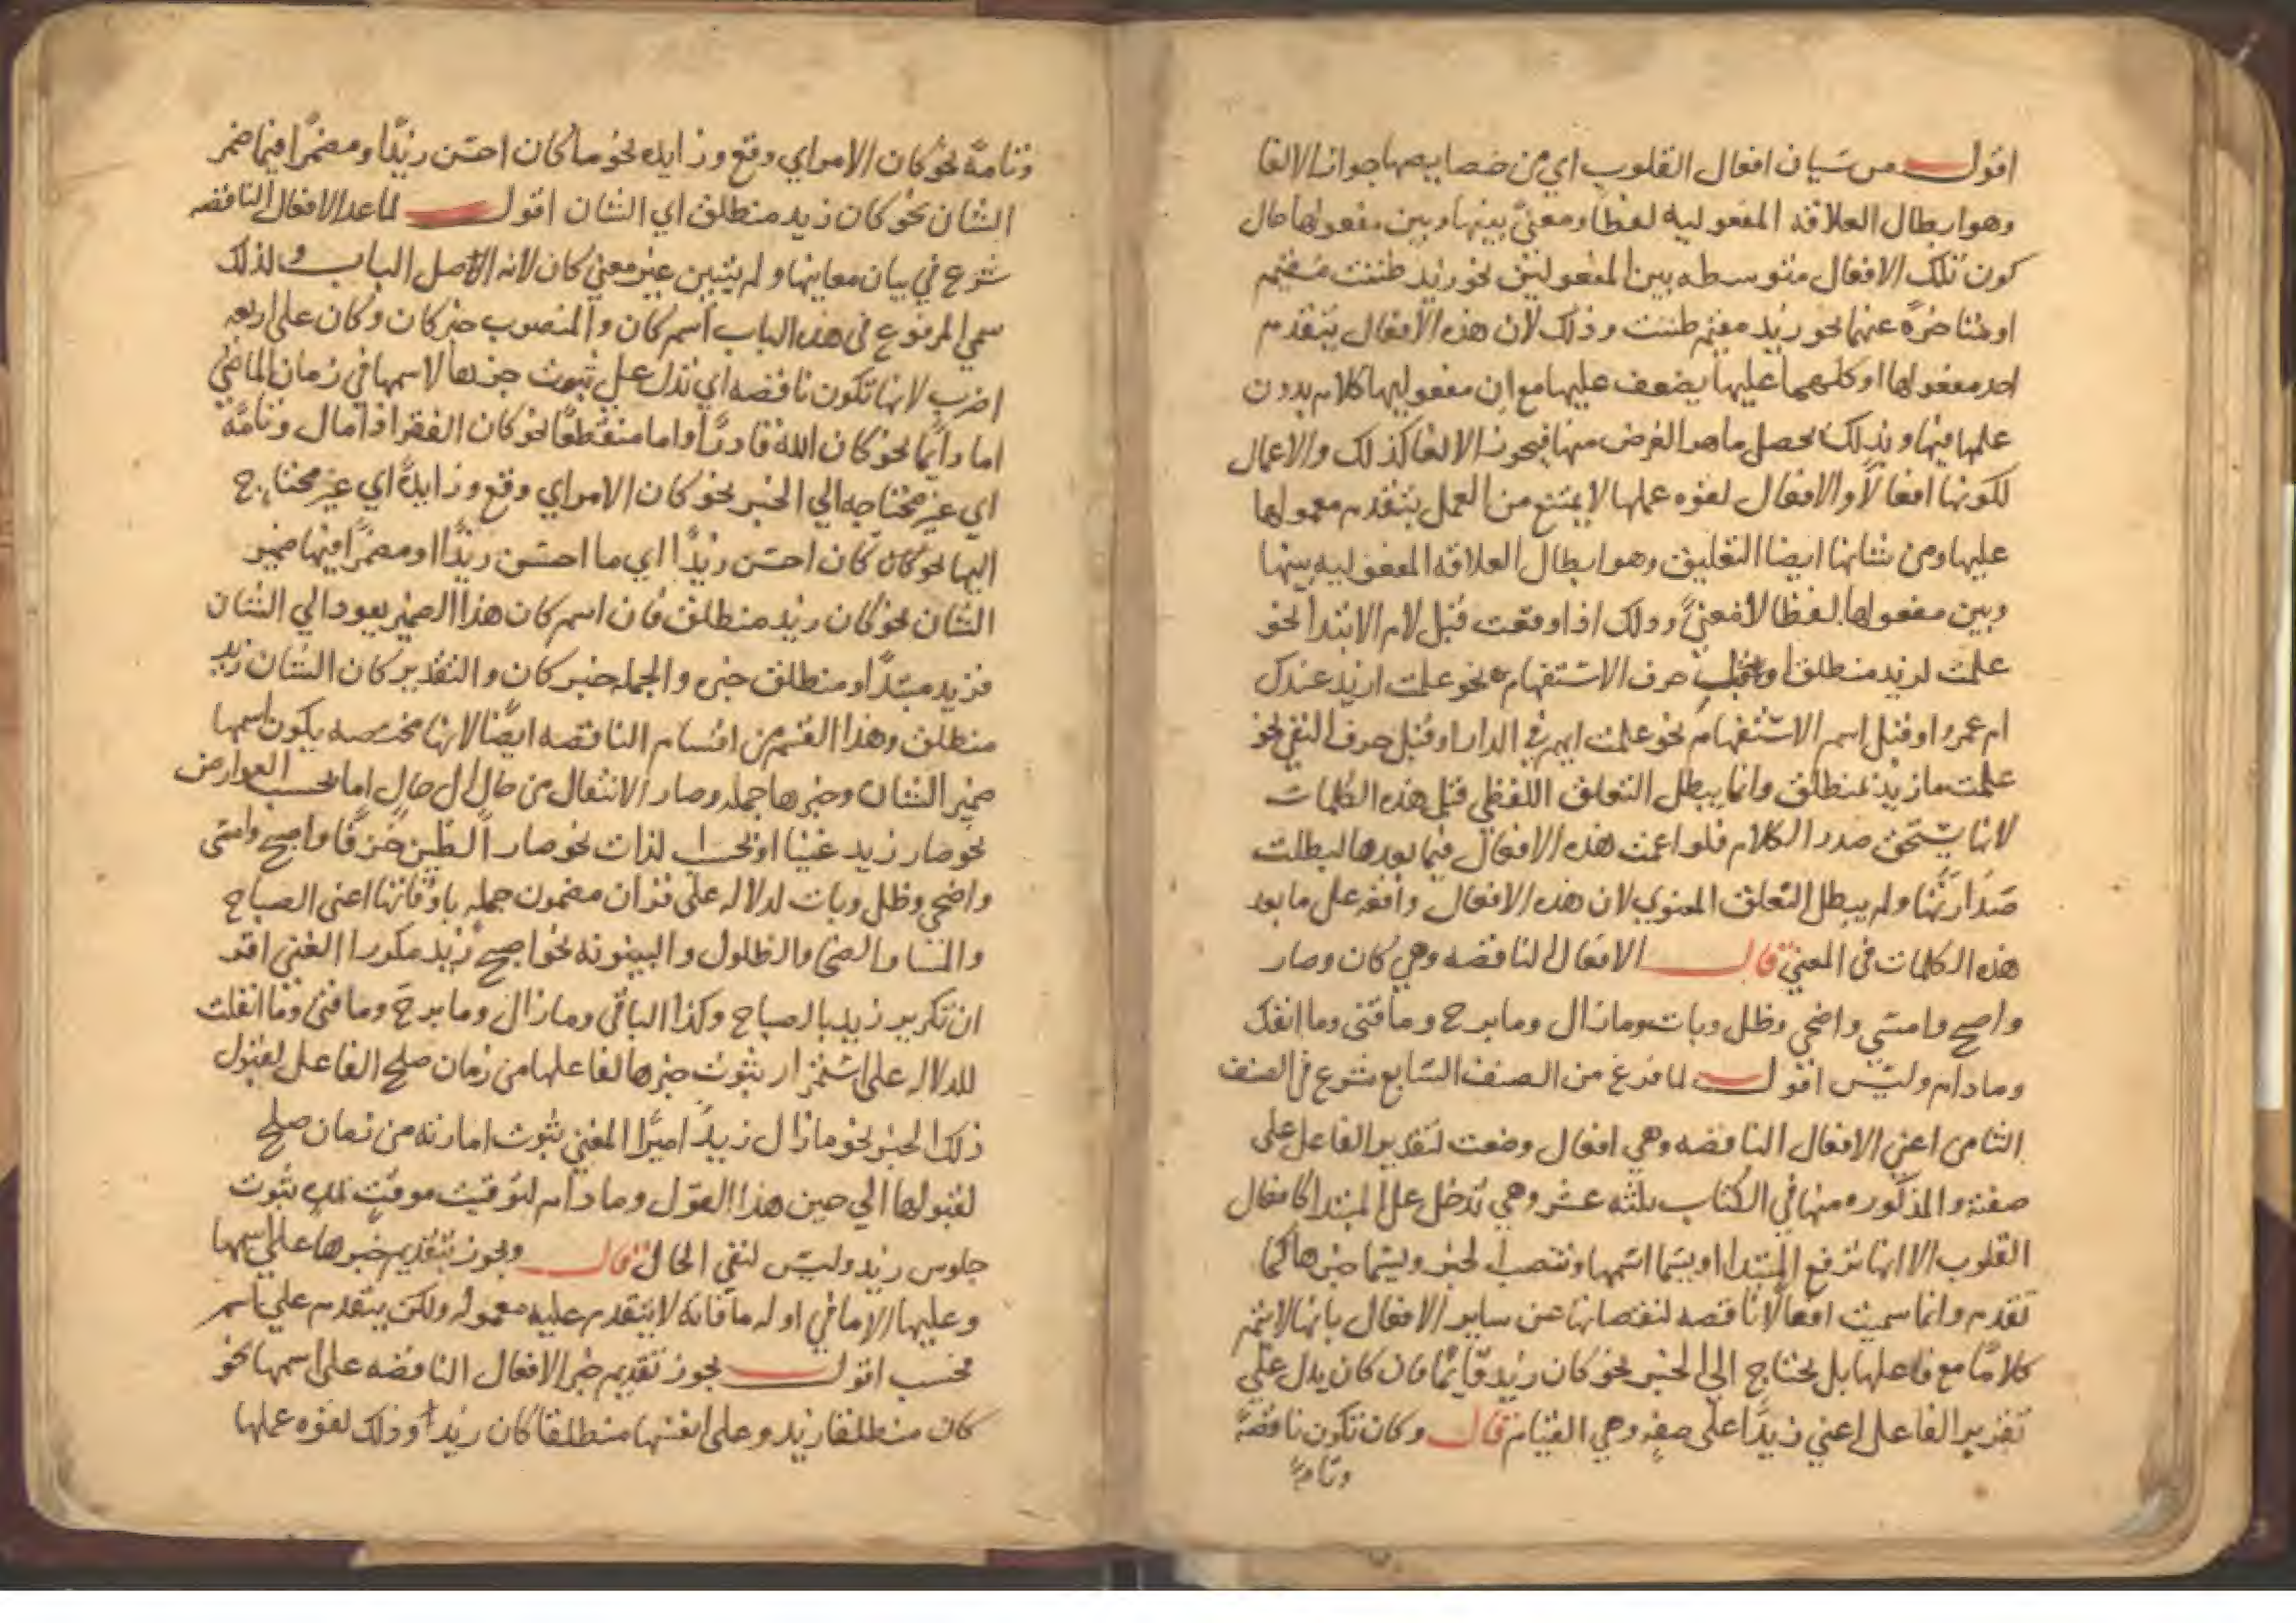 اقول من شيان افعال القلوب اي من خصايصها جواز الالغا
وهو ابطال العلاقه المفعوليه لفظا ومعنىً بينها وبين مفعولها حال
كون تلك الافعال متوسطه بين المفعولين نحو زيد ظننت مقيم
او متاخرةً عنهما نحو زيد مقيم ظننت وذلك لان هذه الافعال يتقدم
احد مفعولها او كلهما عليها يضعف عليها مع ان مفعوليها كلام بدون
علمها فيها وبذلك يحصل ما هو الغرض منها فيجوز الالغا كذلك والاعمال
لكونها افعالاً والافعال لقوه عملها لا يمتنع من العمل بتقدم معمولها
عليها ومن شانها ايضا التعليق وهو ابطال العلاقه المفعوليه بينها
وبين مفعولها لفظا لا معنىً وذلك اذا وقعت قبل لام الابتدا نحو
علمت لزيد منطلق او قبل حرف الاستفهام نحو علمت ازيد عندك
ام عمرو او قبل اسم الاستفهام نحو علمت ايهم في الدار او قبل حرف النفي نحو
علمت ما زيد منطلق وانما يبطل التعلق اللفظي قبل هذه الكلمات
لانها يستحق صدر الكلام فلو اعمت هذه الافعال فيما بعدها لبطلت
صدارتها ولم يبطل التعلق المعنوي لان هذه الافعال واقعه على ما بعد
هذه الكلمات في المعني قال الافعال الناقصه وهي كان وصار
واصبح وامسي واضحي وظل وبات وما زال وما برح وما فتئ وما انفك
وما دام وليس اقول لما فرغ من الصنف السابع شرع في الصنف
الثامن اعني الافعال الناقصه وهي افعال وضعت لتقرير الفاعل على
صفة والمذكوره منها في الكتاب ثلثه عشر وهي تدخل على المبتدا كافعال
القلوب الا انها ترفع المبتدا اويسما اسمها وتنصب الخبر ويسما خبرها كما
تقدم وانما سميت افعالا ناقصه لنقصانها عن ساير الافعال بانها لا يتم
كلامًا مع فاعلها بل يحتاج الى الخبر نحو كان زيد قايمًا فان كان يدل على
تقرير الفاعل اعني زيدًا على صفه وهي القيام قال وكان تكون ناقصةً
وتامةً
وتامةً نحو كان الامر اي وقع وزايده نحو ما كان احسن زيدًا ومضمرًا فيها ضمر
الشان نحو كان زيد منطلق اي الشان اقول لما عدا الافعال الناقصه
شرع في بيان معاينها ولم يتبين غير معني كان لانه الاصل الباب ولذلك
سمي المرفوع في هذه الباب اسم كان والمنصوب خبر كان وكان على اربعه
اضرب لانها تكون ناقصه اي تدل على ثبوت خبرها لاسمها في زمان الماضي
اما دايمًا نحو كان الله قادرًا واما منقطعًا نحو كان الفقر اذا مال وتامةً
اي غير محتاجه الي الخبر نحو كان الامر اي وقع وزايدةً اي غير محتاج
اليها نحو كان كان احسن زيدًا اي ما احسن زيدًا او مضمرًا فيها ضمير
الشان نحو كان زيد منطلق فان اسم كان هذا الضمير يعود الي الشان
فزيد مبتدًا ومنطلق خبره والجمله خبر كان والتقدير كان الشان زيد
منطلق وهذا القسم من اقسام الناقصه ايضًا لانها مختصه يكون اسمها
ضمير الشان وخبرها جمله وصار الانتقال من حال الى حال اما بحسب العوارض
نحو صار زيد غنيا او بحسب لذات نحو صار الطين خزفًا واصبح وامسى
واضحي وظل وبات لدلاله على قران مضمون جمله باوقاتها اعني الصباح
والمسا والضحا والظلول والبيتوته نحو اصبح زيد مكورا المعني اقو
ان تكرير زيد بالصباح وكذا الباقي وما زال وما برح وما فتئ وما انفكت
للدلاله على استمرار ثبوت خبرها لفاعلها من زمان صلح الفاعل لقبول
ذلك الخبر نحو ما زال زيدً اميرًا المعني ثبوت امارته من زمان صلح
لقبولها الي حين هذا القول وما دام لتوقيت موقت لمده ثبوت
جلوس زيد وليس لنفي الحال قال ويجوز بتقديم خبرها على اسمها
وعليها الا ما في اوله ما فانه لا يتقدم عليه معموله ولكن يتقدم على اسم
فحسب اقول يجوز تقديم خبر الافعال الناقصه على اسمها نحو
كان منطلقا زيد وعلى انفسها منطلقا كان زيد وذلك لقوه عملها